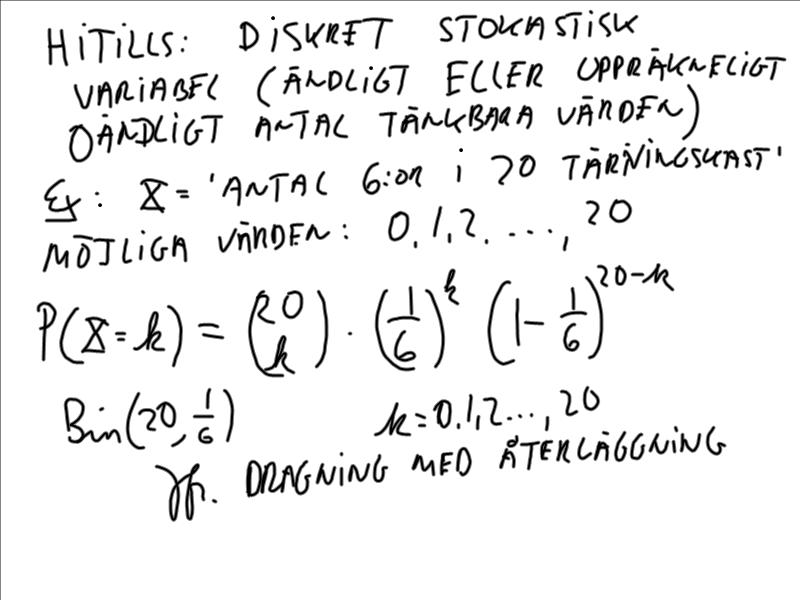 HITILLS: DISKRET STOKASTISK
VARIABEL (ÄNDLIGT ELLER UPPRÄKNELIGT
OÄNDLIGT ANTAL TÄNKBARA VÄRDEN)
Ex: X = 'ANTAL 6:or i 20 TÄRNINGSKAST'
MÖJLIGA VÄRDEN: 0, 1, 2, ..., 20
P(X=k) = (20 k) · (1/6)^k (1 - 1/6)^20-k
Bin(20, 1/6) k=0,1,2...,20
Jfr. DRAGNING MED ÅTERLÄGGNING